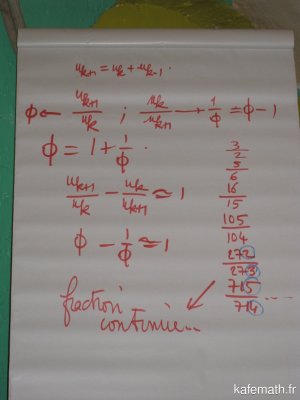 u_{k+1} = u_k + u_{k-1}.
ϕ ← u_{k+1}/u_k ; u_k/u_{k+1} → 1/ϕ = ϕ - 1
ϕ = 1 + 1/ϕ.
u_{k+1}/u_k - u_k/u_{k+1} ≈ 1
ϕ - 1/ϕ ≈ 1
3/2
5/6
16/15
105/104
272/273
715/714 ....
fraction
continue...
kafemath.fr